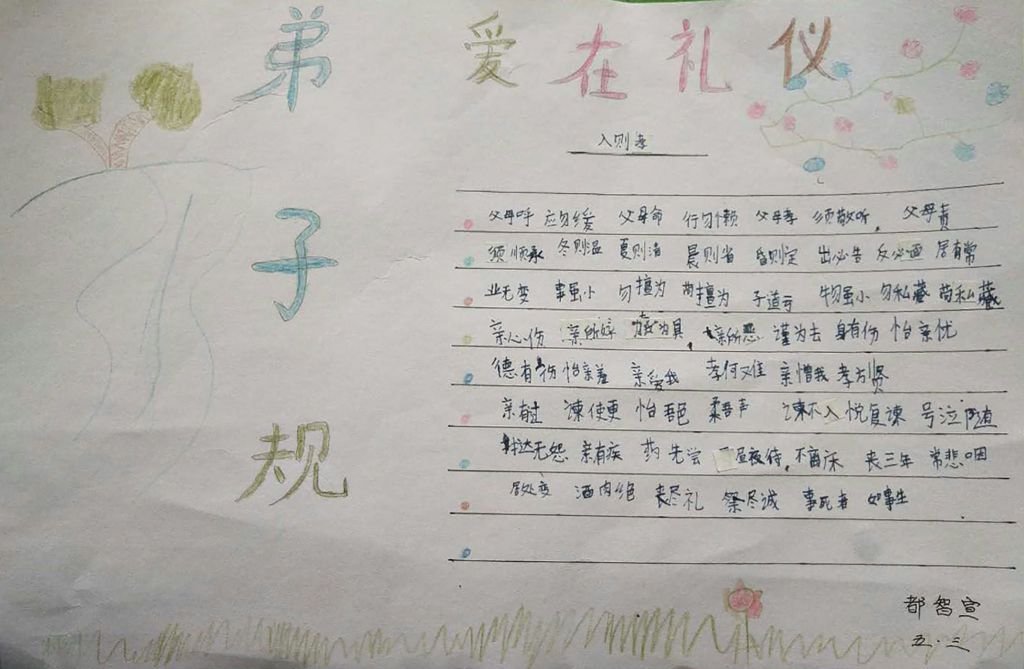 弟子规
爱在礼仪
入则孝
父母呼 应勿缓 父母命 行勿懒 父母孝 须敬听 父母责
须顺承 冬则温 夏则清 晨则省 昏则定 出必告 反必面 居有常
业无变 事虽小 勿擅为 苟擅为 子道亏 物虽小 勿私藏 苟私藏
亲心伤 亲所好 为具 亲所恶 谨为去 身有伤 怡亲忧
德有伤 怡亲羞 亲爱我 孝何难 亲憎我 孝方贤
亲有过 谏使更 怡吾色 柔吾声 谏不入 悦复谏 号泣随
挞无怨 亲有疾 药先尝 夜侍 不离床 丧三年 常悲咽
居处变 酒肉绝 丧尽礼 祭尽诚 事死者 如事生
都智宣
五.三